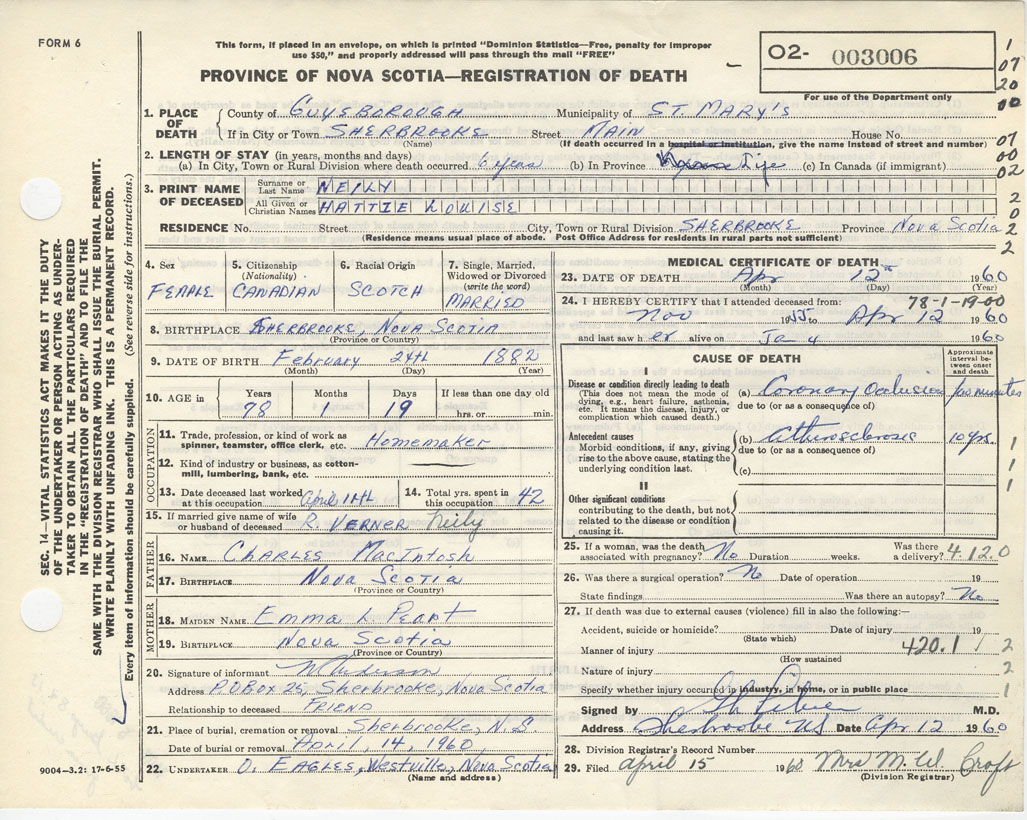 FORM 6
This form, if placed in an envelope, on which is printed "Dominion Statistics—Free, penalty for improper
use $50," and properly addressed will pass through the mail "FREE"
PROVINCE OF NOVA SCOTIA—REGISTRATION OF DEATH
02- 003006
For use of the Department only
1
07
20
00
07
00
02
2
0
2
2
2
1. PLACE OF DEATH
County of GUYSBOROUGH Municipality of ST. MARY'S
If in City or Town SHERBROOKE Street MAIN House No.
(Name) (If death occurred in a hospital or institution, give the name instead of street and number)
2. LENGTH OF STAY (in years, months and days)
(a) In City, Town or Rural Division where death occurred 6 years (b) In Province Life (c) In Canada (if immigrant)
3. PRINT NAME OF DECEASED
Surname or Last Name NEILY
All Given or Christian Names HATTIE LOUISE
RESIDENCE No. Street City, Town or Rural Division SHERBROOKE Province Nova Scotia
(Residence means usual place of abode. Post Office Address for residents in rural parts not sufficient)
4. Sex
FEAPLE
5. Citizenship
(Nationality)
CANADIAN
6. Racial Origin
SCOTCH
7. Single, Married,
Widowed or Divorced
(write the word)
MARRIED
8. BIRTHPLACE SHERBROOKE, NOVA SCOTIA
(Province or Country)
9. DATE OF BIRTH February 24th 1882
(Month) (Day) (Year)
10. AGE in
Years Months Days If less than one day old
78 1 19 hrs. or min.
OCCUPATION
11. Trade, profession, or kind of work as
spinner, teamster, office clerk, etc. Homemaker
12. Kind of industry or business, as cotton-
mill, lumbering, bank, etc.
13. Date deceased last worked
at this occupation April 11th
14. Total yrs. spent in
this occupation 42
15. If married give name of wife
or husband of deceased R. VERNER Neily
FATHER
16. NAME CHARLES MACINTOSH
17. BIRTHPLACE NOVA SCOTIA
(Province or Country)
MOTHER
18. MAIDEN NAME Emma L. Peart
19. BIRTHPLACE NOVA SCOTIA
(Province or Country)
20. Signature of informant
Address P.O Box 25, Sherbrooke, Nova Scotia
Relationship to deceased FRIEND
21. Place of burial, cremation or removal Sherbrooke, N.S.
Date of burial or removal April, 14, 1960
22. UNDERTAKER O. EAGLES, Westville, Nova Scotia
(Name and address)
MEDICAL CERTIFICATE OF DEATH
23. DATE OF DEATH Apr 12th 1960
(Month) (Day) (Year)
24. I HEREBY CERTIFY that I attended deceased from: 78-1-19-00
Nov 1955 to Apr 12 1960
and last saw h er alive on Jan 4 1960
CAUSE OF DEATH
Approximate
interval be-
tween onset
and death
I
Disease or condition directly leading to death
(This does not mean the mode of
dying, e.g., heart failure, asthenia,
etc. It means the disease, injury, or
complication which caused death.)
(a) Coronary Occlusion minutes
due to (or as a consequence of)
Antecedent causes
Morbid conditions, if any, giving
rise to the above cause, stating the
underlying condition last.
(b) atherosclerosis 10 yrs. 1
due to (or as a consequence of)
(c) 1
1
II
Other significant conditions
contributing to the death, but not
related to the disease or condition
causing it.
25. If a woman, was the death
associated with pregnancy? No Duration weeks. Was there
a delivery? 4.12.0
26. Was there a surgical operation? No Date of operation 19
State findings Was there an autopsy? No
27. If death was due to external causes (violence) fill in also the following:—
Accident, suicide or homicide? Date of injury 19
(State which)
Manner of injury 420.1 / 2
(How sustained
Nature of injury 2
Specify whether injury occurred in industry, in home, or in public place 1
Signed by M.D.
Address Sherbrooke NS Date Apr 12 1960
28. Division Registrar's Record Number
29. Filed April 15 1960 Mrs M. W. Croft
(Division Registrar)
SEC. 14—VITAL STATISTICS ACT MAKES IT THE DUTY
OF THE UNDERTAKER OR PERSON ACTING AS UNDER-
TAKER TO OBTAIN ALL THE PARTICULARS REQUIRED
IN THE "REGISTRATION OF DEATH" AND TO FILE THE
SAME WITH THE DIVISION REGISTRAR WHO SHALL ISSUE THE BURIAL PERMIT.
WRITE PLAINLY WITH UNFADING INK. THIS IS A PERMANENT RECORD.
Every item of information should be carefully supplied. (See reverse side for instructions.)
9004—3.2: 17-6-55